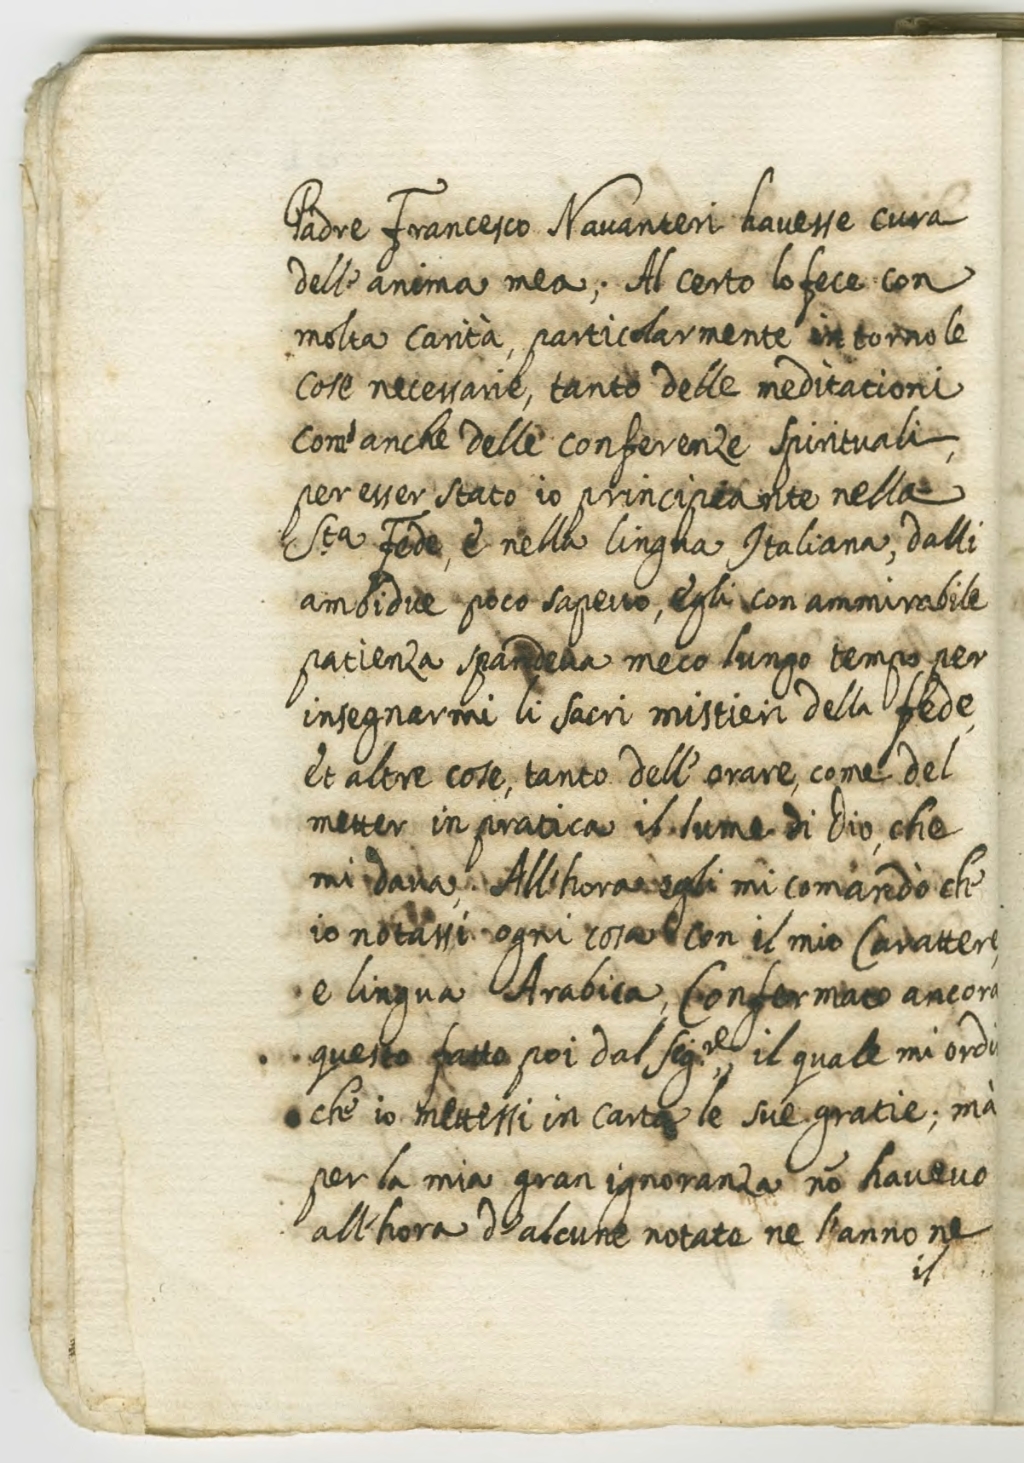 Padre Francesco Navanteri havesse cura
dell' anima mea,. Al certo lo fece con
molta carità, particolarmente in torno le
cose necessarie, tanto delle meditationi
com' anche delle conferenze spirituali,
per esser stato io principiante nella
Sta Fede, è nella lingua Italiana, dalli
ambidue poco sapevo, egli con ammirabile
patienza spandeva meco lungo tempo per
insegnarmi li sacri mistieri della fede,
èt altre cose, tanto dell' orare, come del
metter in pratica il lume di Dio, che
mi dava,. All'hora egli mi comandò che
io notassi ogni cosa con il mio Carattere,
e lingua Arabica, Confermato ancora
questo fatto poi dal Sigre, il quale mi ordi
che io mettessi in carta le sue gratie; mà
per la mia gran ignoranza nõ havevo
all'hora d'alcune notato ne l'anno ne
il